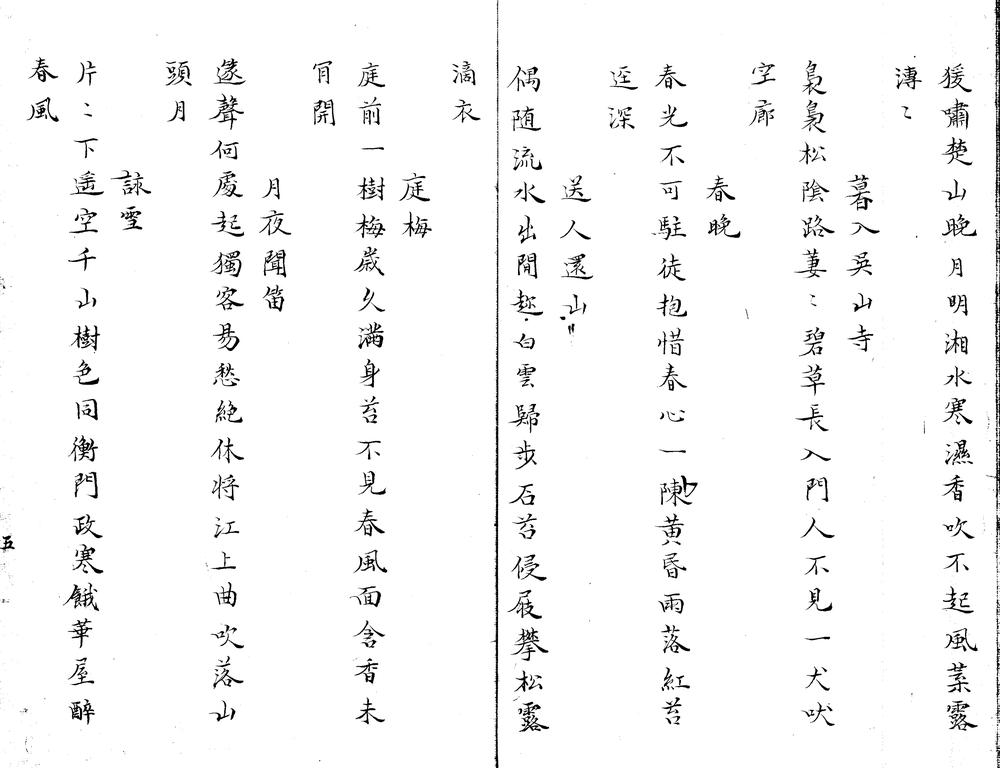 猨嘯楚山晚月明湘水寒濕香吹不起風葉露
漙〻
暮入吳山寺
裊裊松陰路萋〻碧草長入門人不見一犬吠
空廊
春晚
春光不可駐徒抱惜春心一陣黃昏雨落紅苔
逕深
送人還山
偶随流水出閒趂白雲歸步石苔侵屐攀松露
滴衣
庭梅
庭前一樹梅歲久滿身苔不見春風面含香未
肎開
月夜聞笛
遂聲何處起獨客易愁絕休将江上曲吹落山
頭月
詠雪
片〻下遙空千山樹色同衡門政寒餓華屋醉
春風
五